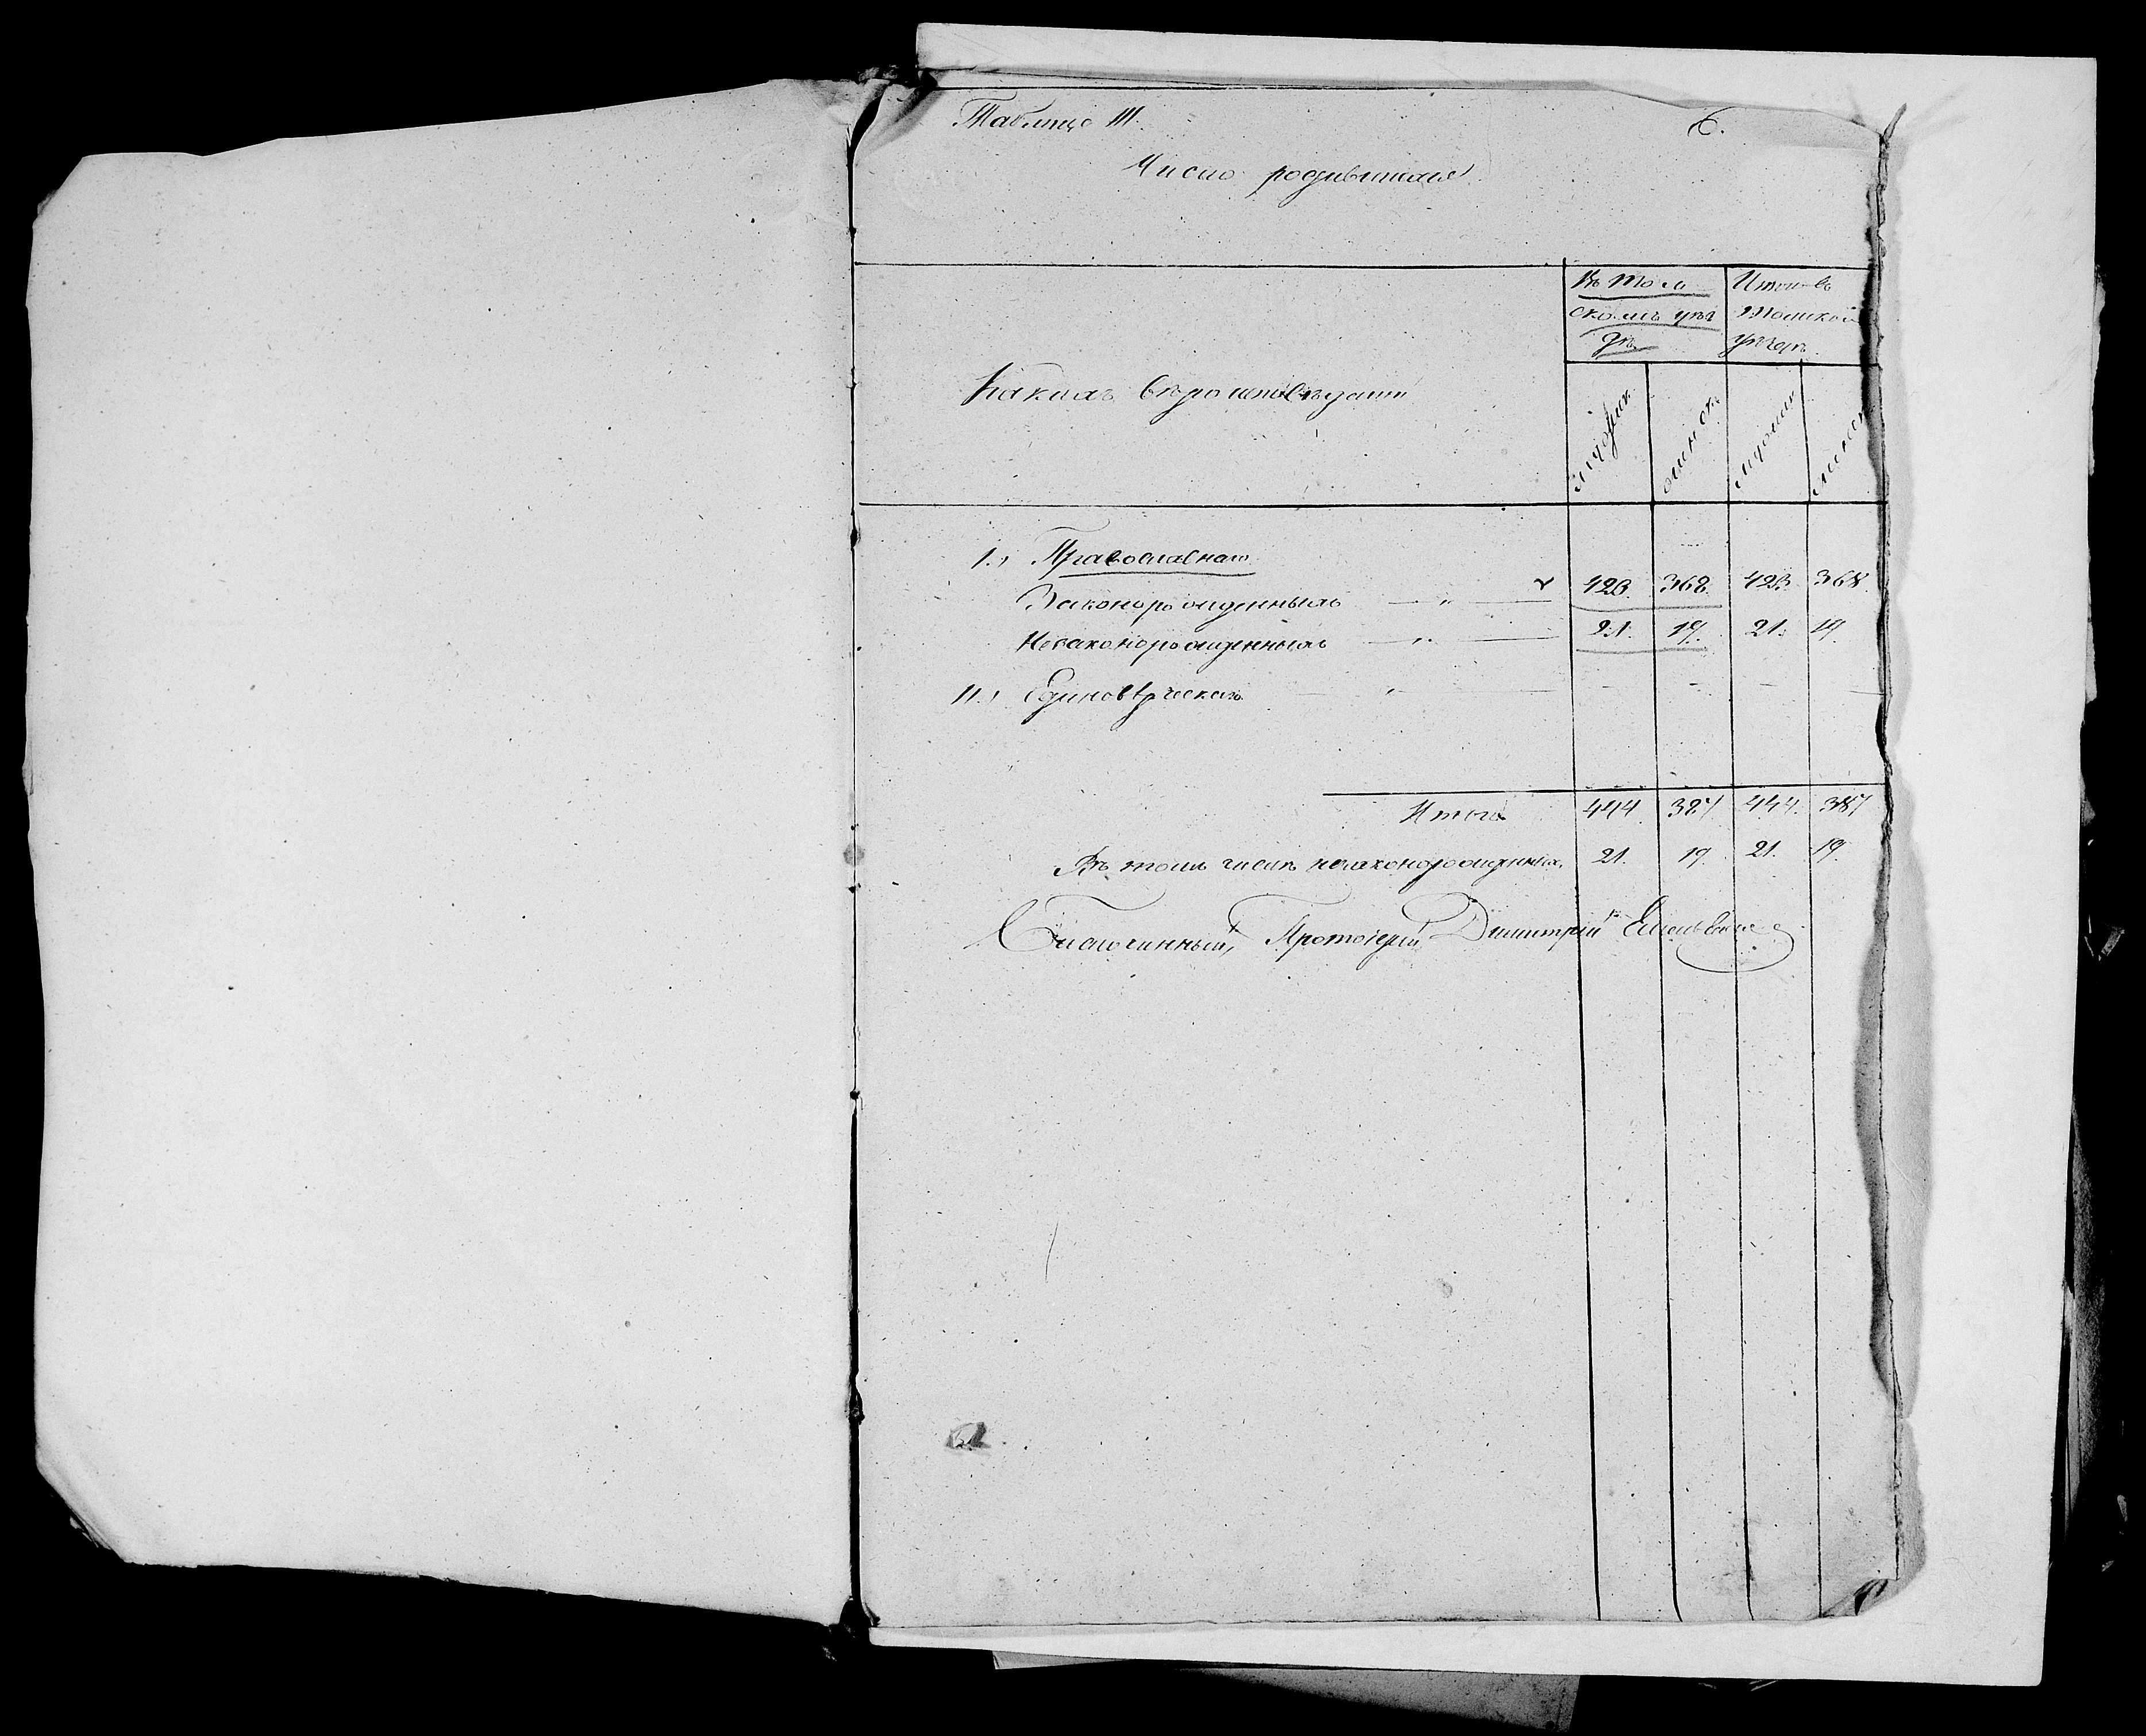 Таблица III.
6.
Число родившихся
Въ Том
скомъ уѣз
дѣ
Итого въ
Томском
уѣздѣ
Какихъ вѣроисповѣданій
мужеск.
женск.
мужеск
женск
I., Православнаго
Законорожденныхъ — „ — 423. 368. 423. 368.
Незаконорожденныхъ — „ — 21. 19. 21. 19
II., Единовѣрческаго — „ — — — — —
Итого 444. 387 444. 387
Въ томъ числѣ незаконорожденных. 21. 19. 21. 19.
Благочинный, Протоіерей Димитрій